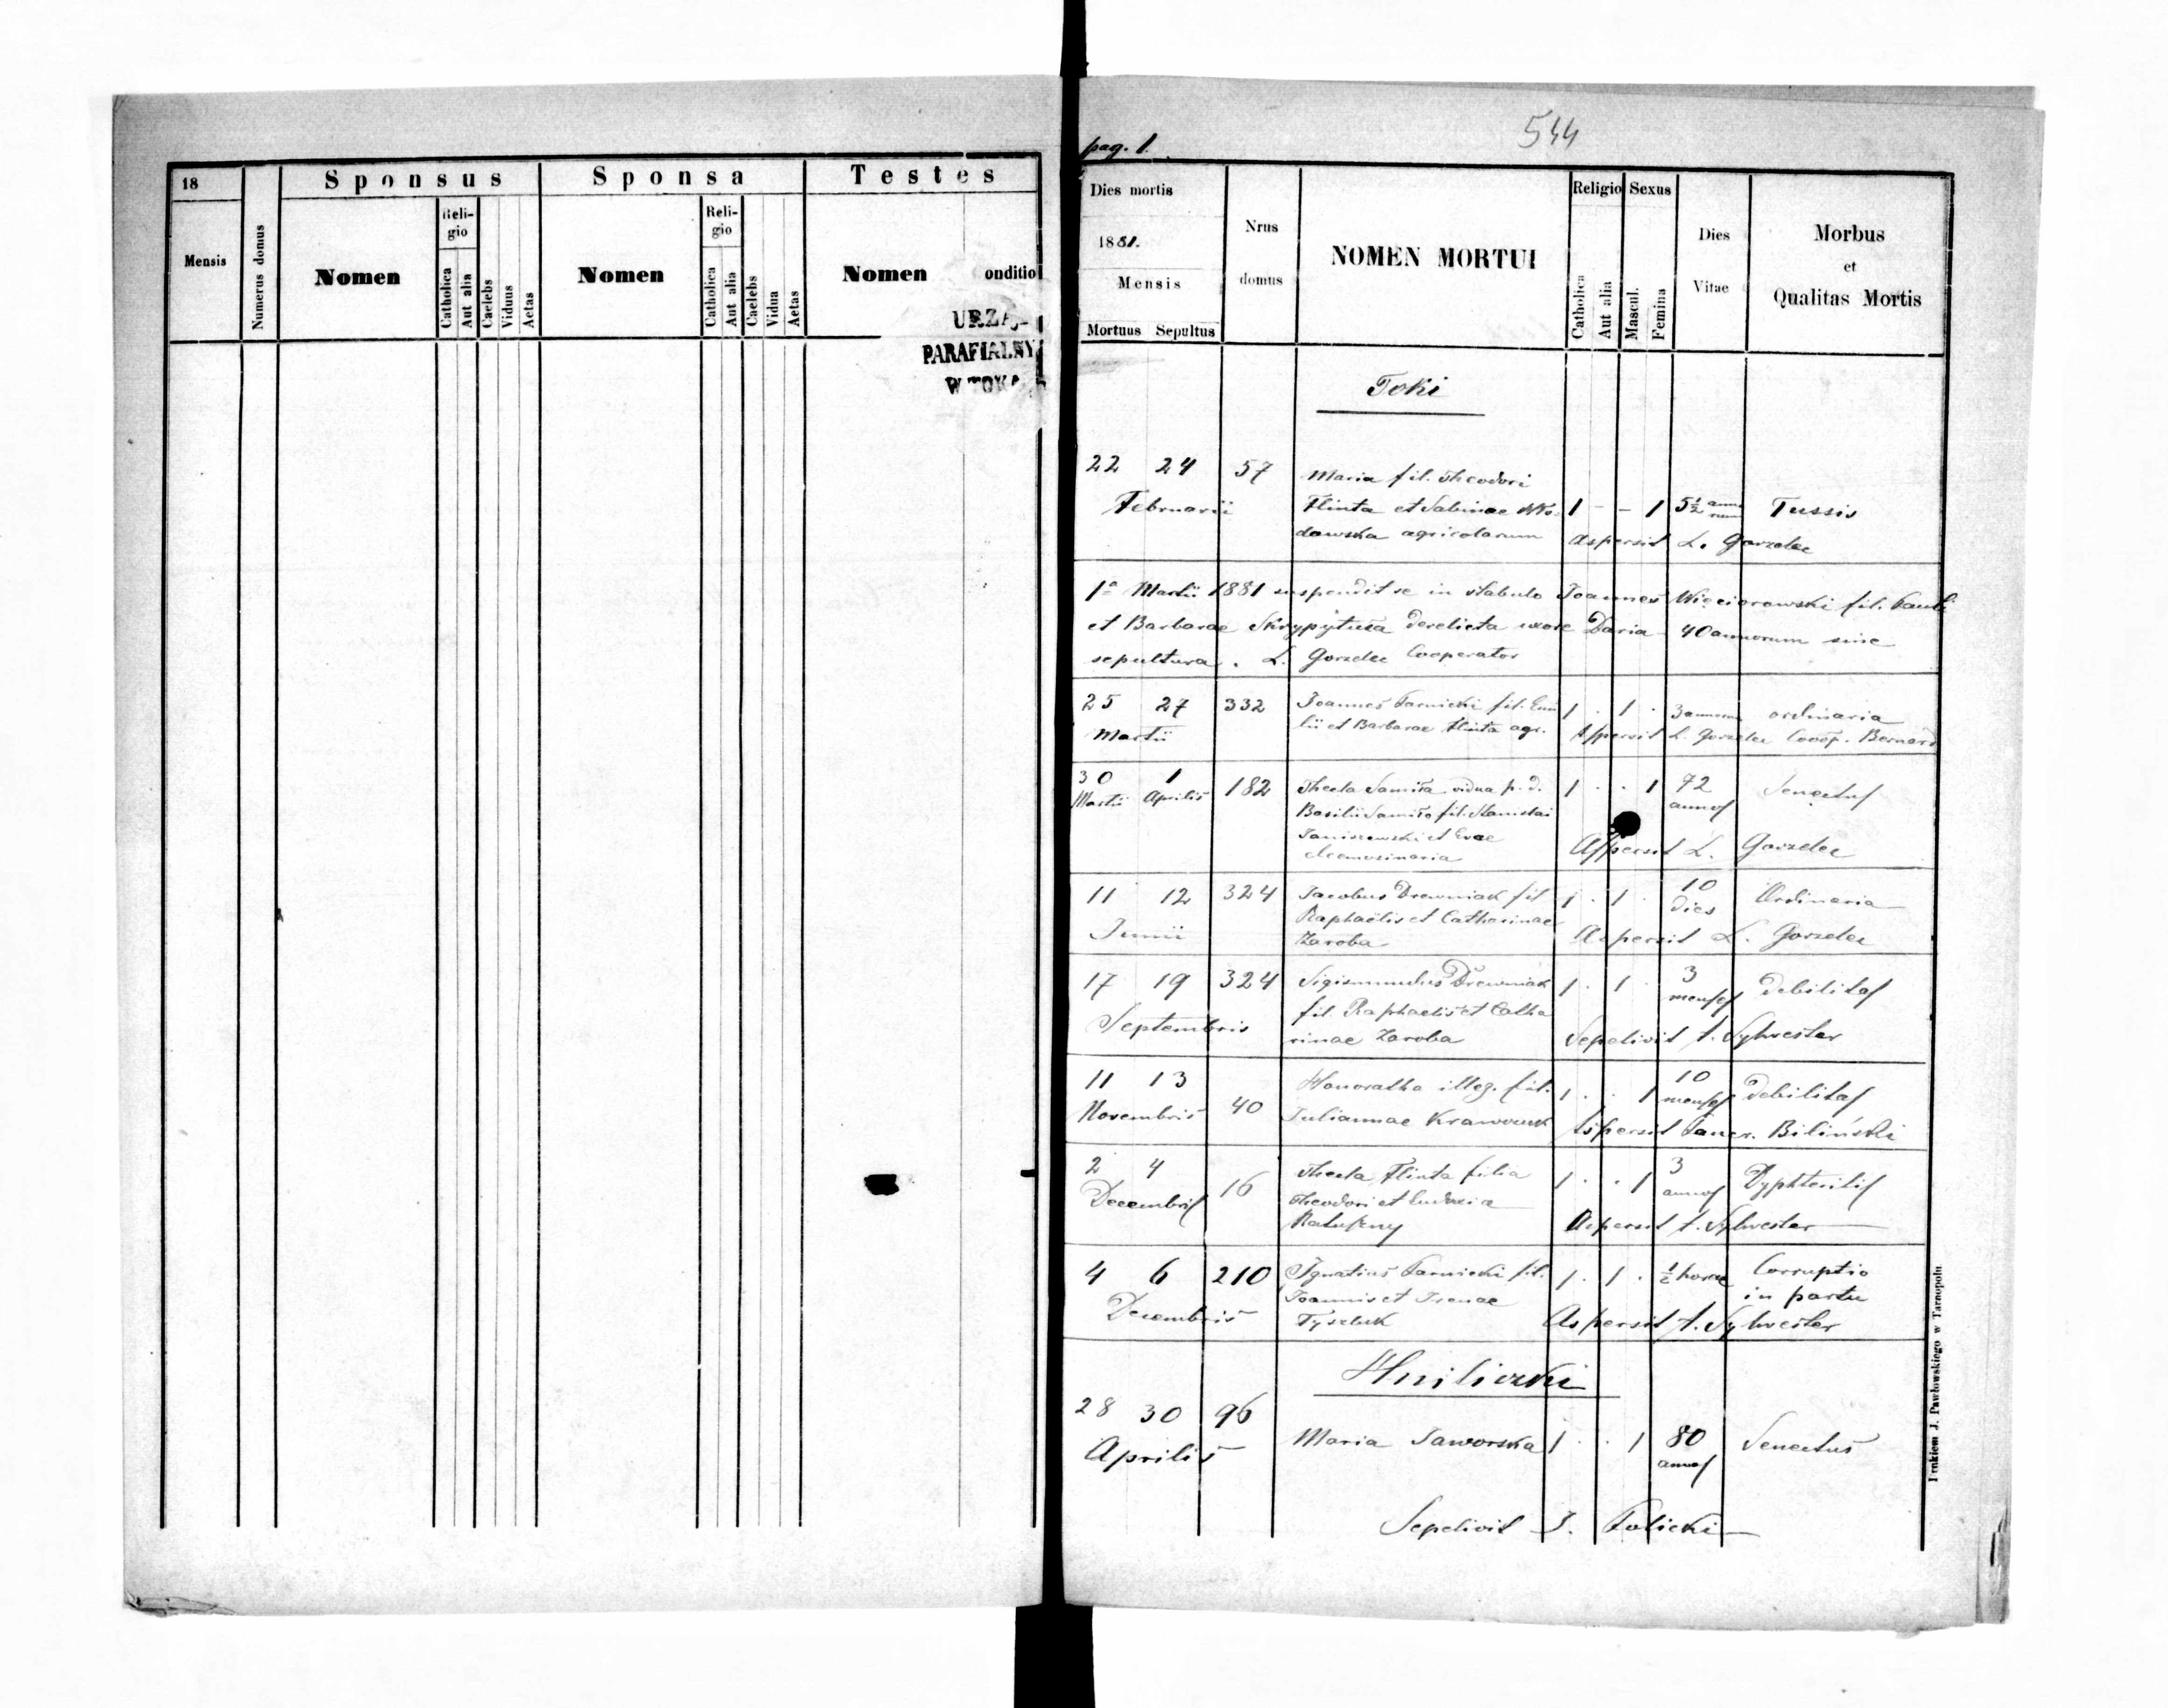 18
Mensis
Numerus domus
Sponsus
Nomen
Reli-
gio
Catholica
Aut alia
Caelebs
Viduus
Aetas
Sponsa
Nomen
Reli-
gio
Catholica
Aut alia
Caelebs
Vidua
Aetas
Testes
Nomen
onditio
PARAFIALNY
pag. 1.
544
Dies mortis
1881.
Mensis
Mortuus Sepultus
Nrus
domus
NOMEN MORTUI
Religio
Catholica
Aut alia
Sexus
Mascul.
Femina
Dies
Vitae
Morbus
et
Qualitas Mortis
Toki
22 24 57 Maria fil. Theodori
Februarii Flinta et Sabinae Wło- 1 - - 1 5½ anno rum Tussis
dawska agricolarum Aspersit L. Gorzelec
1ª Martii 1881 suspendit se in stabulo Joannes Więciorowski fil. Pauli
et Barbarae derelicta uxore Daria 40 annorum sine
sepultura. L. Gorzelec Cooperator
25 27 332 Joannes Tarnicki fil. 1 . 1 . 3 annorum ordinaria
Martii et Barbarae Flinta agr. Aspersit L. Gorzelec Coop. Bernard
30 1 182 Thecla vidua p. d. 1 . . 1 72 Senectus
Martii Aprilis Basilii fil. Stanislai annos
Janiszewski et Evae
eleemosinaria Aspersit L. Gorzelec
11 12 324 Jacobus Drewniak fil 1 . 1 . 10 Ordinaria
Raphaëlis et Catherinae dies
Junii Zaroba Aspersit L. Gorzelec
17 19 324 Sigismundus Drewniak 1 . 1 . 3 debilitas
fil. Raphaelis et Catha menses
Septembris rinae Zaroba Sepelivit t. Sylwester
11 13 Honoratha illeg. fil. 1 . . 1 10 debilitas
Novembris 40 Juliannae Krawczuk menses
Aspersit Biliński
2 4 16 Thecla Flinta filia 1 . . 1 3 Dyphteritis
Decembris Theodori et Eudoxia annos
Aspersit t. Sylwester
4 6 210 Ignatius Tarnicki fil. 1 . 1 . ½ horae Corruptio
Joannis et Irenae in partu
Decembris Tyszluk Aspersit t. Sylwester
Hniliczki
28 30 96
Aprilis Maria Jaworska 1 . . 1 80 Senectus
annos
Sepelivit J. Folicki
Drukiem J. Pawłowskiego w Tarnopolu.